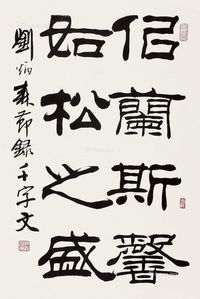 侣蘭斯馨
如松之盛
劉炳森節録千字文